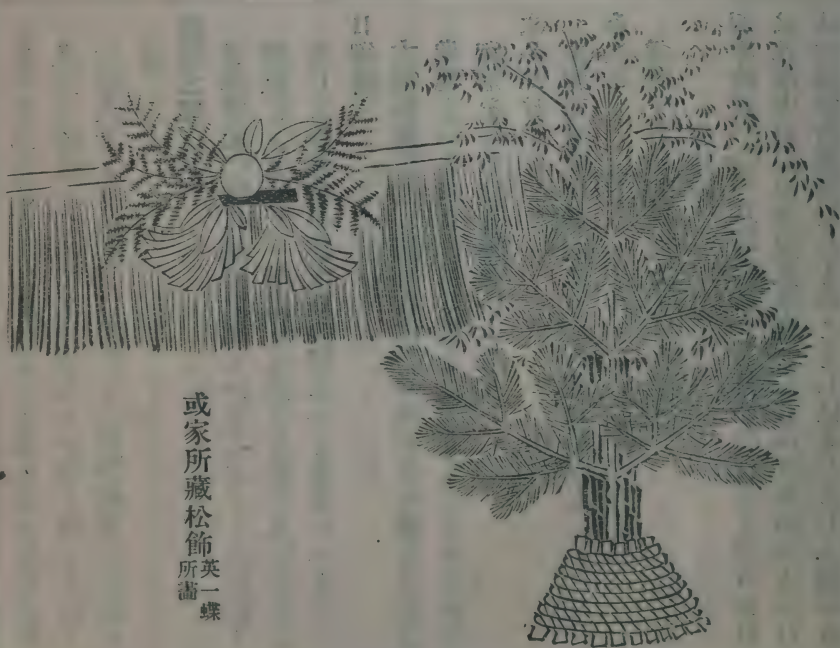 或家所藏松飾
英一蝶
所畵